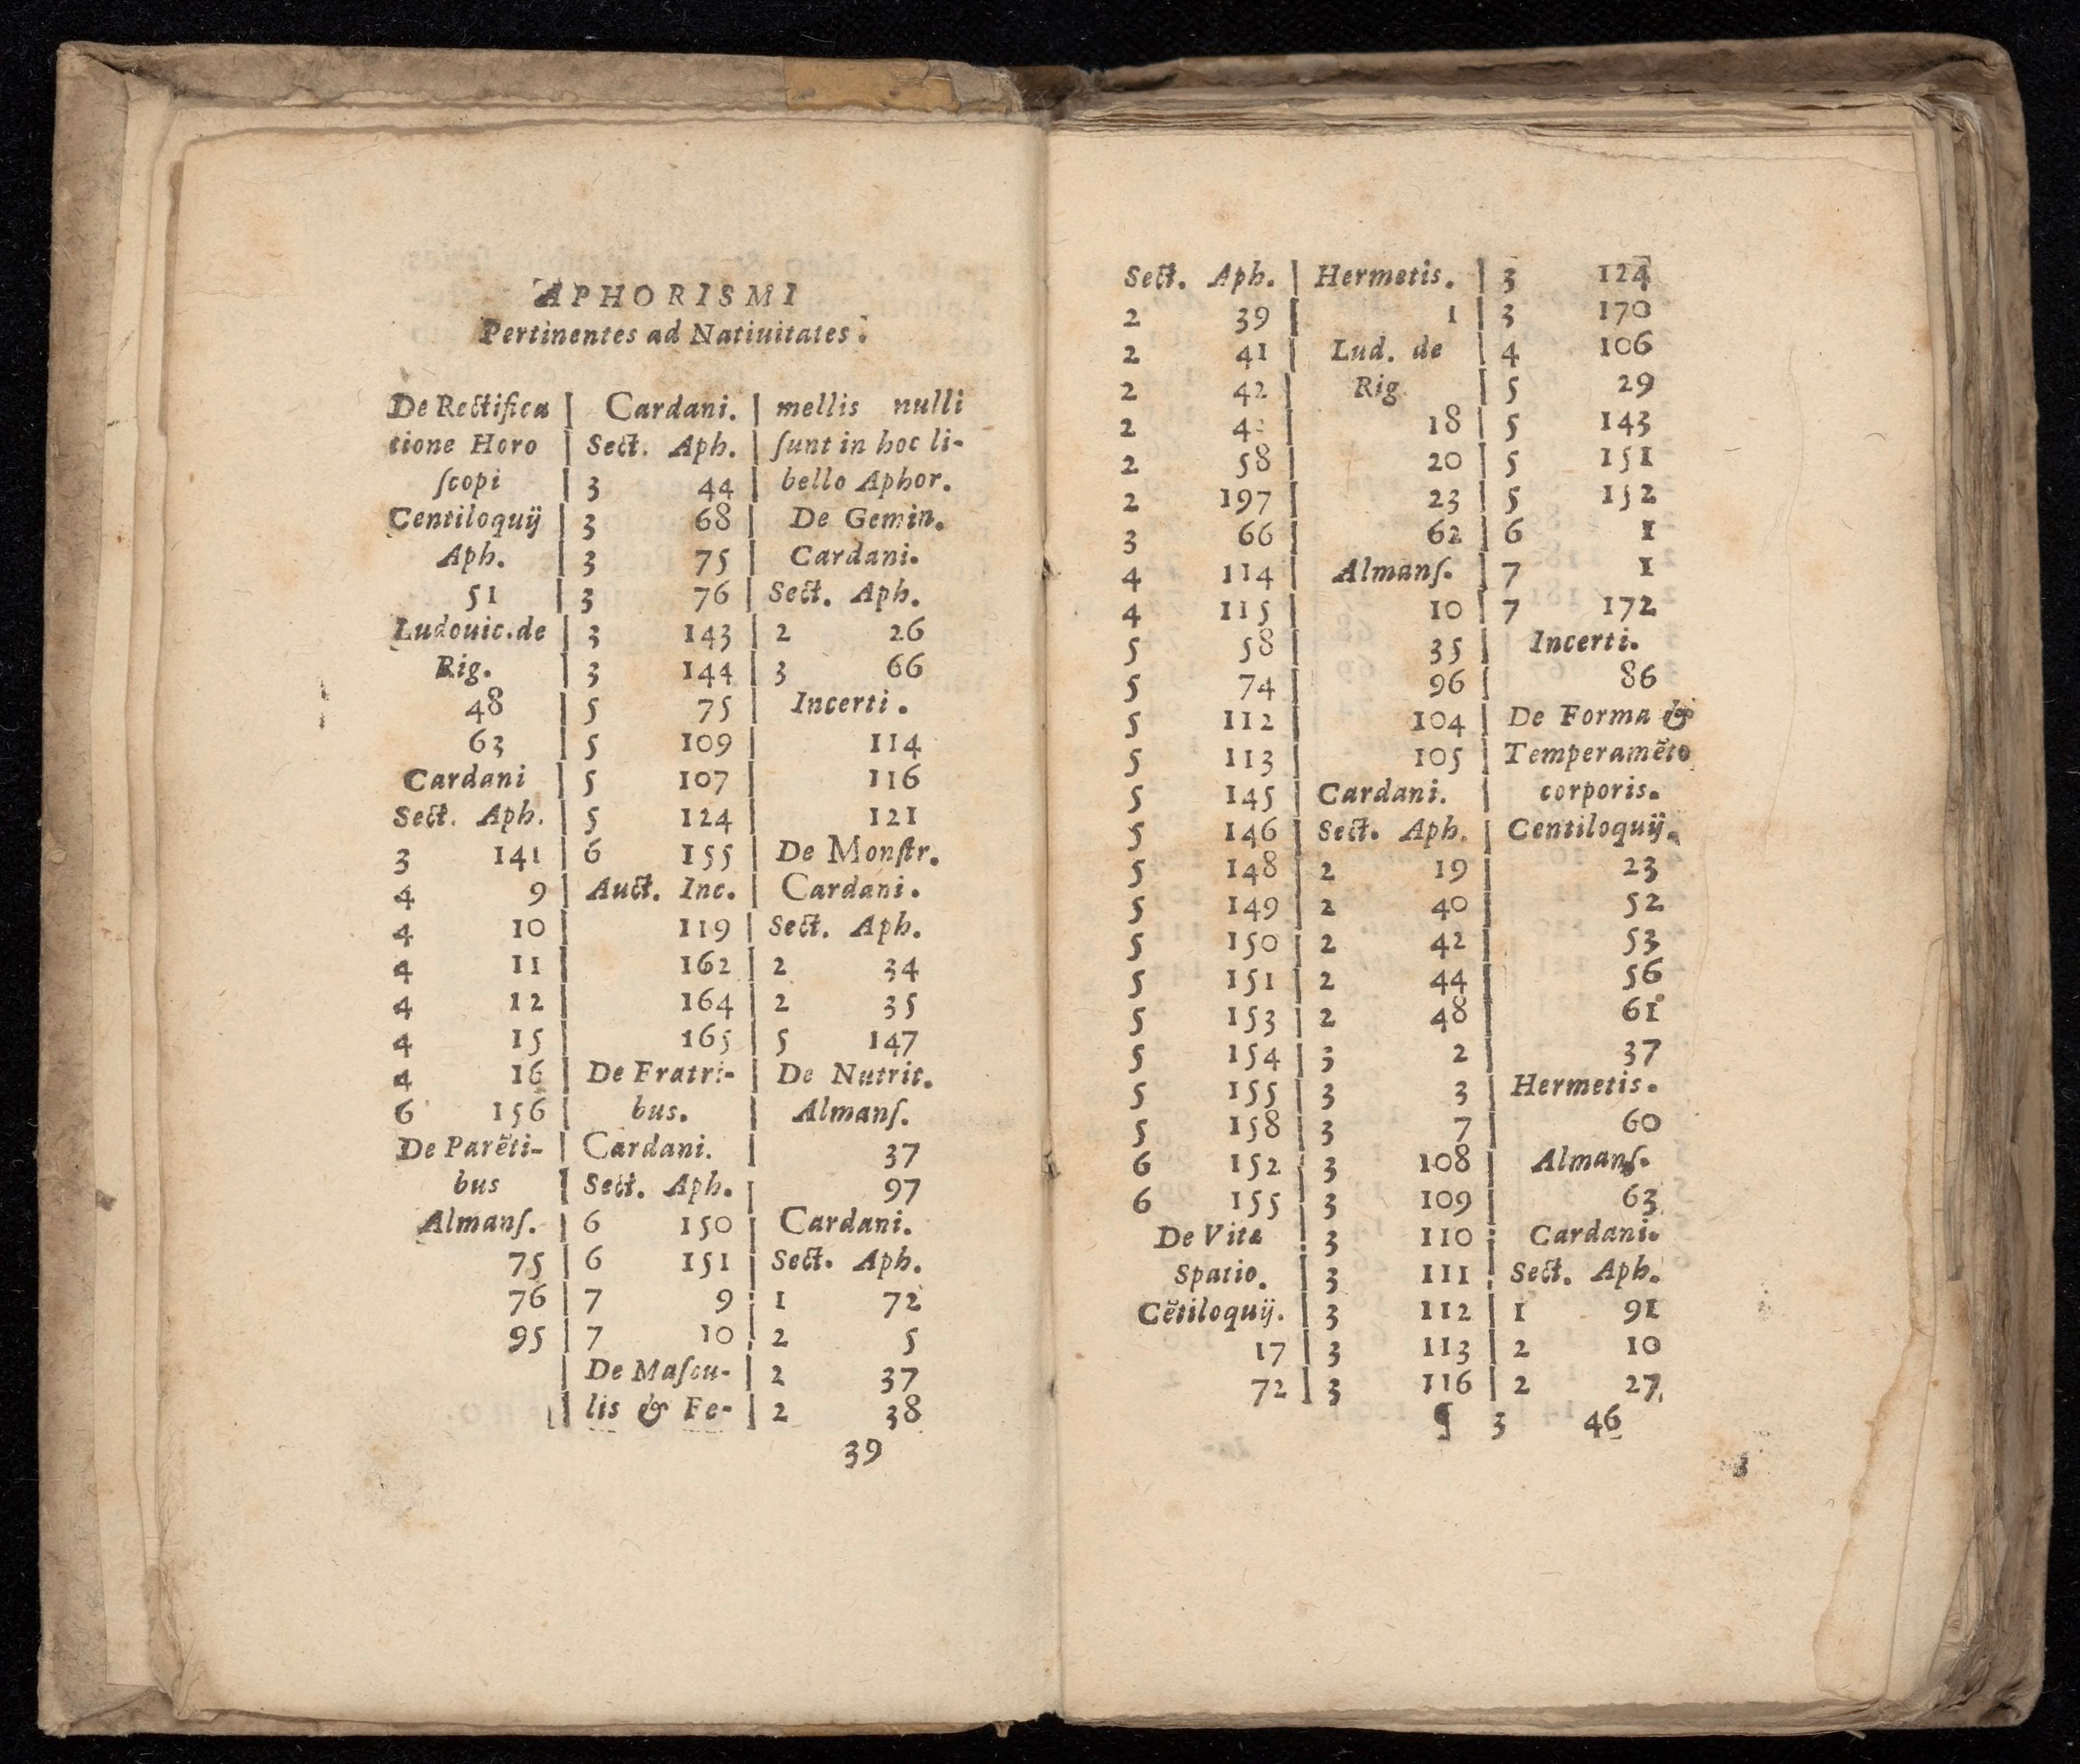 APHORISMI
Pertinentes ad Natiuitates.
De Rectifica
tione Horo
ſcopi
Centiloquij
Aph.
51
Ludouic.de
Rig.
48
63
Cardani
Sect. Aph.
3 141
4 9
4 10
4 11
4 12
4 15
4 16
6 156
De Parẽti-
bus
Almanſ.
75
76
95
Cardani.
Sect. Aph.
3 44
3 68
3 75
3 76
3 143
3 144
5 75
5 109
5 107
5 124
6 155
Auct. Inc.
119
162
164
165
De Fratri-
bus.
Cardani.
Sect. Aph.
6 150
6 151
7 9
7 10
De Maſcu-
lis & Fe-
mellis nulli
ſunt in hoc li-
bello Aphor.
De Gemin.
Cardani.
Sect. Aph.
2 26
3 66
Incerti.
114
116
121
De Monſtr.
Cardani.
Sect. Aph.
2 34
2 35
5 147
De Nutrit.
Almanſ.
37
97
Cardani.
Sect. Aph.
1 72
2 5
2 37
2 38
39
Sect. Aph.
2 39
2 41
2 42
2
2 58
2 197
3 66
4 114
4 115
5 58
5 74
5 112
5 113
5 145
5 146
5 148
5 149
5 150
5 151
5 153
5 154
5 155
5 158
6 152
6 155
De Vitæ
Spatio.
Cẽtiloquij.
17
72
Hermetis.
1
Lud. de
Rig
18
20
23
62
Almanſ.
10
35
96
104
105
Cardani.
Sect. Aph.
2 19
2 40
2 42
2 44
2 48
3 2
3 3
3 7
3 108
3 109
3 110
3 111
3 112
3 113
3 116
¶
3 124
3 170
4 106
5 29
5 143
5 151
5 152
6 1
7 1
7 172
Incerti.
86
De Forma &
Temperamẽto
corporis.
Centiloquij.
23
52
53
56
61
37
Hermetis.
60
Almanſ.
63
Cardani.
Sect. Aph.
1 91
2 10
2 27
3 46